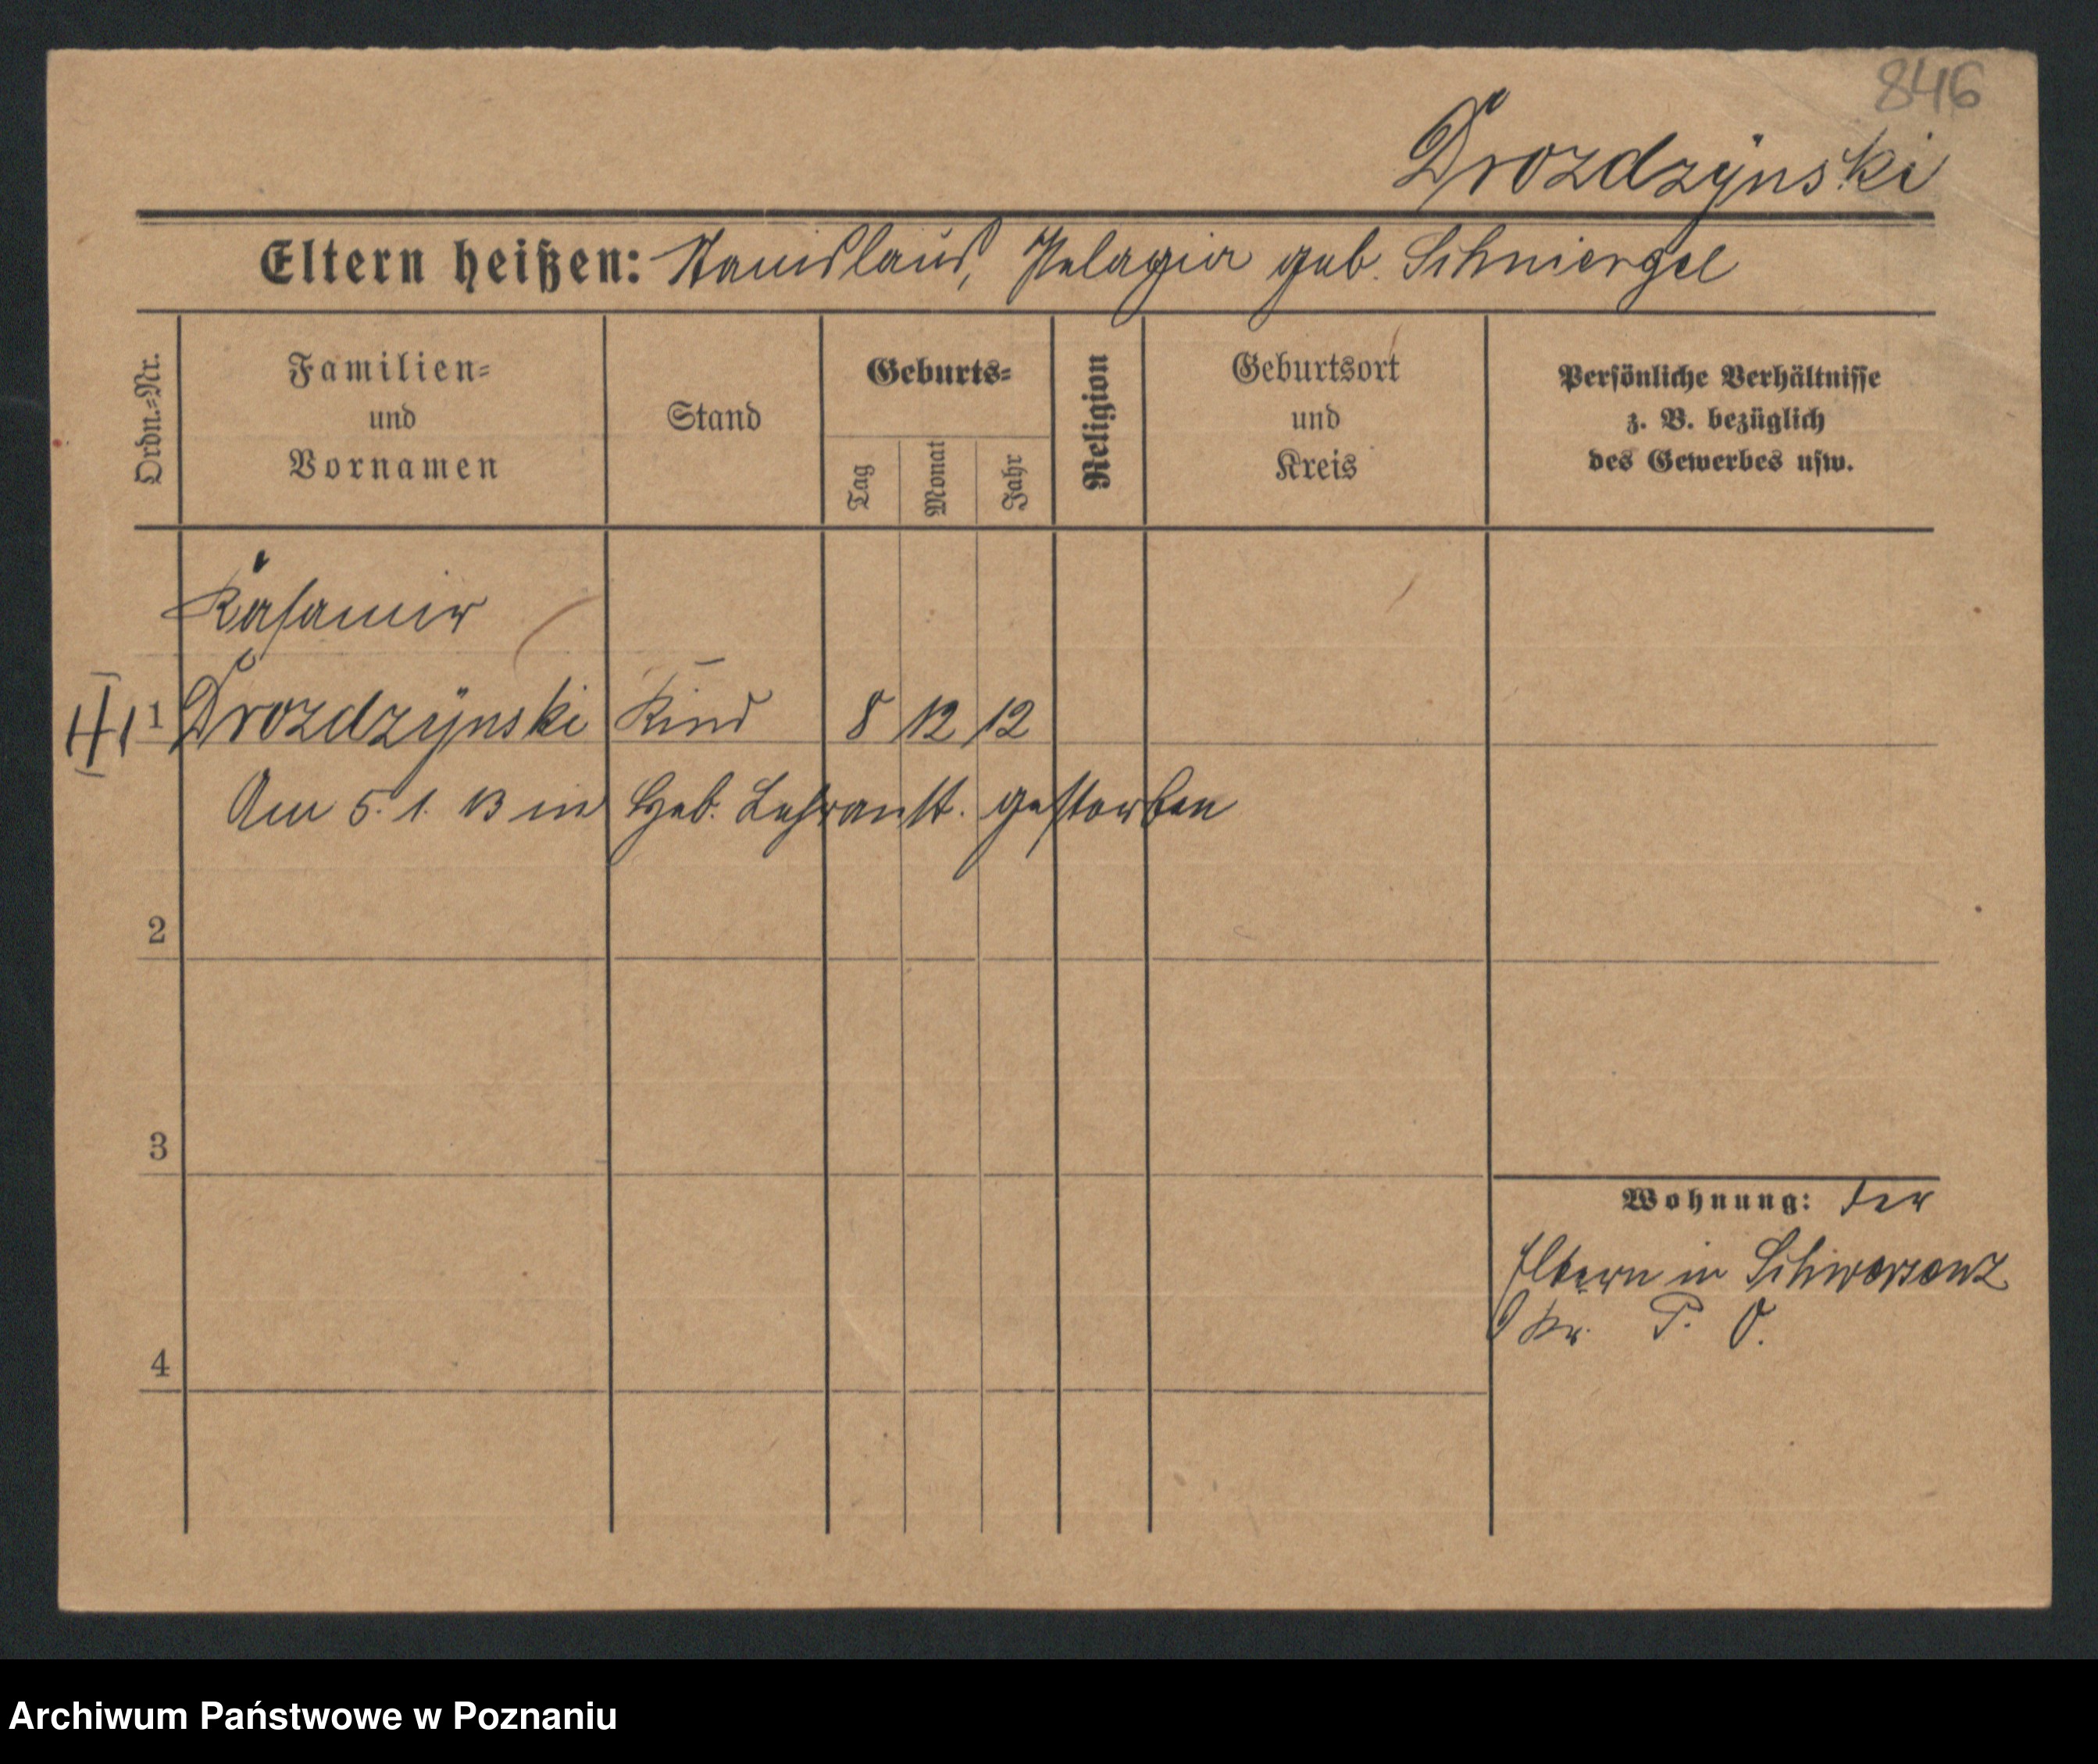 846
Drozdzynski
Eltern heißen: Stanislaus, Pelagia geb. Schniergel
Ordn.=Nr.
Familien=
und
Vornamen
Stand
Geburts=
Tag
Monat
Jahr
Religion
Geburtsort
und
Kreis
Persönliche Verhältnisse
z. B. bezüglich
des Gewerbes usw.
Kasamir
1 Drozdzynski Kind 8 12 12
Am 5. 1. 13 in Heb. Lehranst. gestorben
2
3
4
Wohnung: der
Eltern in Schwersenz
Kr. P. O.
Archiwum Państwowe w Poznaniu